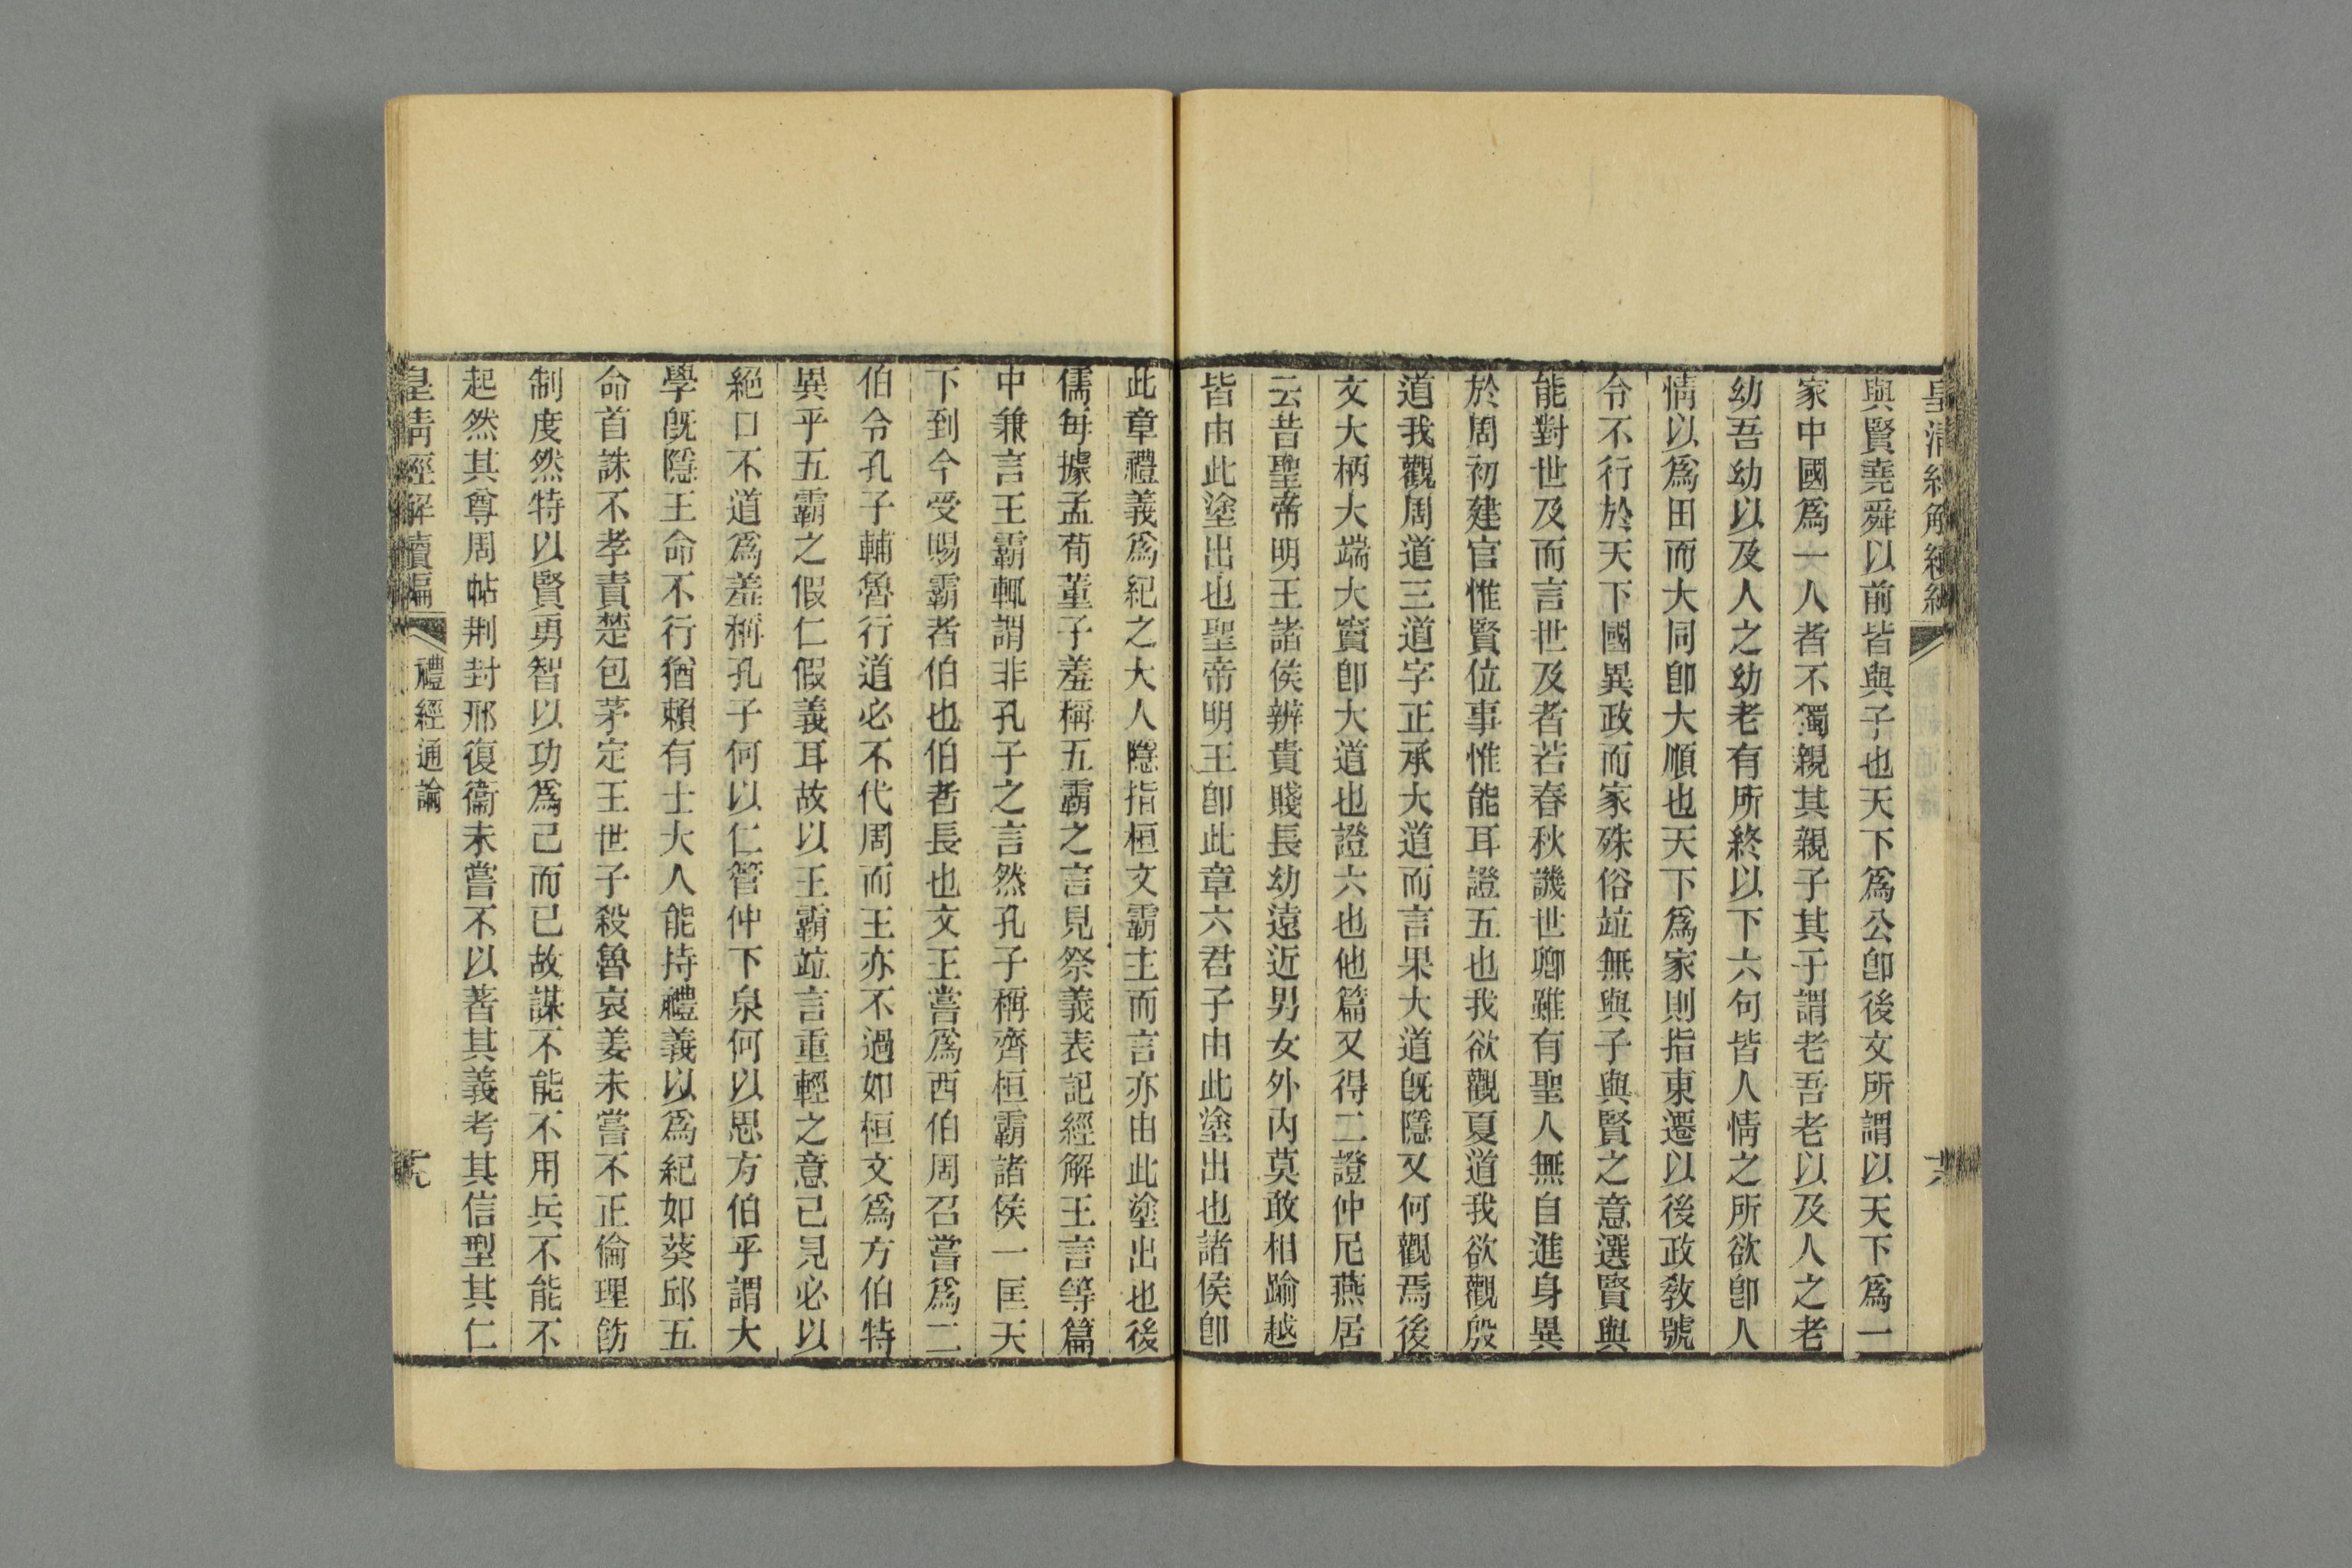 皇清經解續編
與賢堯舜以前皆與子也天下爲公卽後文所謂以天下爲一
家中國爲一人者不獨親其親子其子謂老吾老以及人之老
幼吾幼以及人之幼老有所終以下六句皆人情之所欲卽人
情以爲田而大同卽大順也天下爲家則指東遷以後政敎號
令不行於天下國異政而家殊俗竝無與子與賢之意選賢與
能對世及而言世及者若春秋譏世卿雖有聖人無自進身異
於周初建官惟賢位事惟能耳證五也我欲觀夏道我欲觀殷
道我觀周道三道字正承大道而言果大道旣隱又何觀焉後
文大柄大端大竇卽大道也證六也他篇又得二證仲尼燕居
云昔聖帝明王諸侯辨貴賤長幼遠近男女外內莫敢相踰越
皆由此塗出也聖帝明王卽此章六君子由此塗出也諸侯卽
此章禮義爲紀之大人隱指桓文霸主而言亦由此塗出也後
儒每據孟荀董子羞稱五霸之言見祭義表記經解王言等篇
中兼言王霸輒謂非孔子之言然孔子稱齊桓霸諸侯一匡天
下到今受賜霸者伯也伯者長也文王嘗爲西伯周召嘗爲二
伯令孔子輔魯行道必不代周而王亦不過如桓文爲方伯特
異乎五霸之假仁假義耳故以王霸竝言重輕之意已見必以
絕口不道爲羞稱孔子何以仁管仲下泉何以思方伯乎謂大
學旣隱王命不行猶賴有士大人能持禮義以爲紀如葵邱五
命首誅不孝責楚包茅定王世子殺魯哀姜未嘗不正倫理飭
制度然特以賢勇智以功爲己而已故謀不能不用兵不能不
起然其尊周帖荆封邢復衞未嘗不以著其義考其信型其仁
皇清經解續編
禮經通論